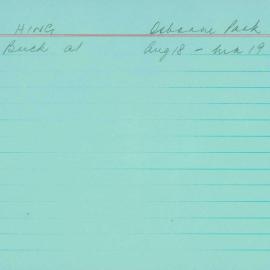 HING Osborne Park
Buck at Aug 18 - Mar 19